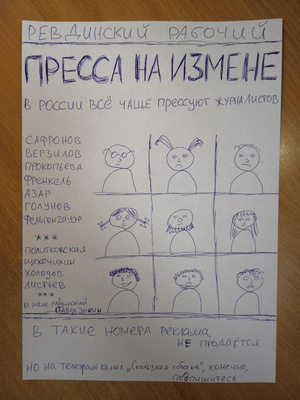 РЕВДИНСКИЙ РАБОЧИЙ
ПРЕССА НА ИЗМЕНЕ
В РОССИИ ВСЁ ЧАЩЕ ПРЕССУЮТ ЖУРНАЛИСТОВ
САФРОНОВ
ВЕРЗИЛОВ
ПРОКОПЬЕВА
ФРЕНКЕЛЬ
АЗАР
ГОЛУНОВ
ФЕЛЬГЕНГАУЭР
***
ПОЛИТКОВСКАЯ
ЩЕКОЧИХИН
ХОЛОДОВ
ЛИСТЬЕВ
***
И НАШ
В ТАКИЕ НОМЕРА РЕКЛАМА
НЕ ПРОДАЁТСЯ
НО НА ТЕЛЕГРАМ КАНАЛ „Скользкая собака", КОНЕЧНО,
ПОДПИШИТЕСЬ